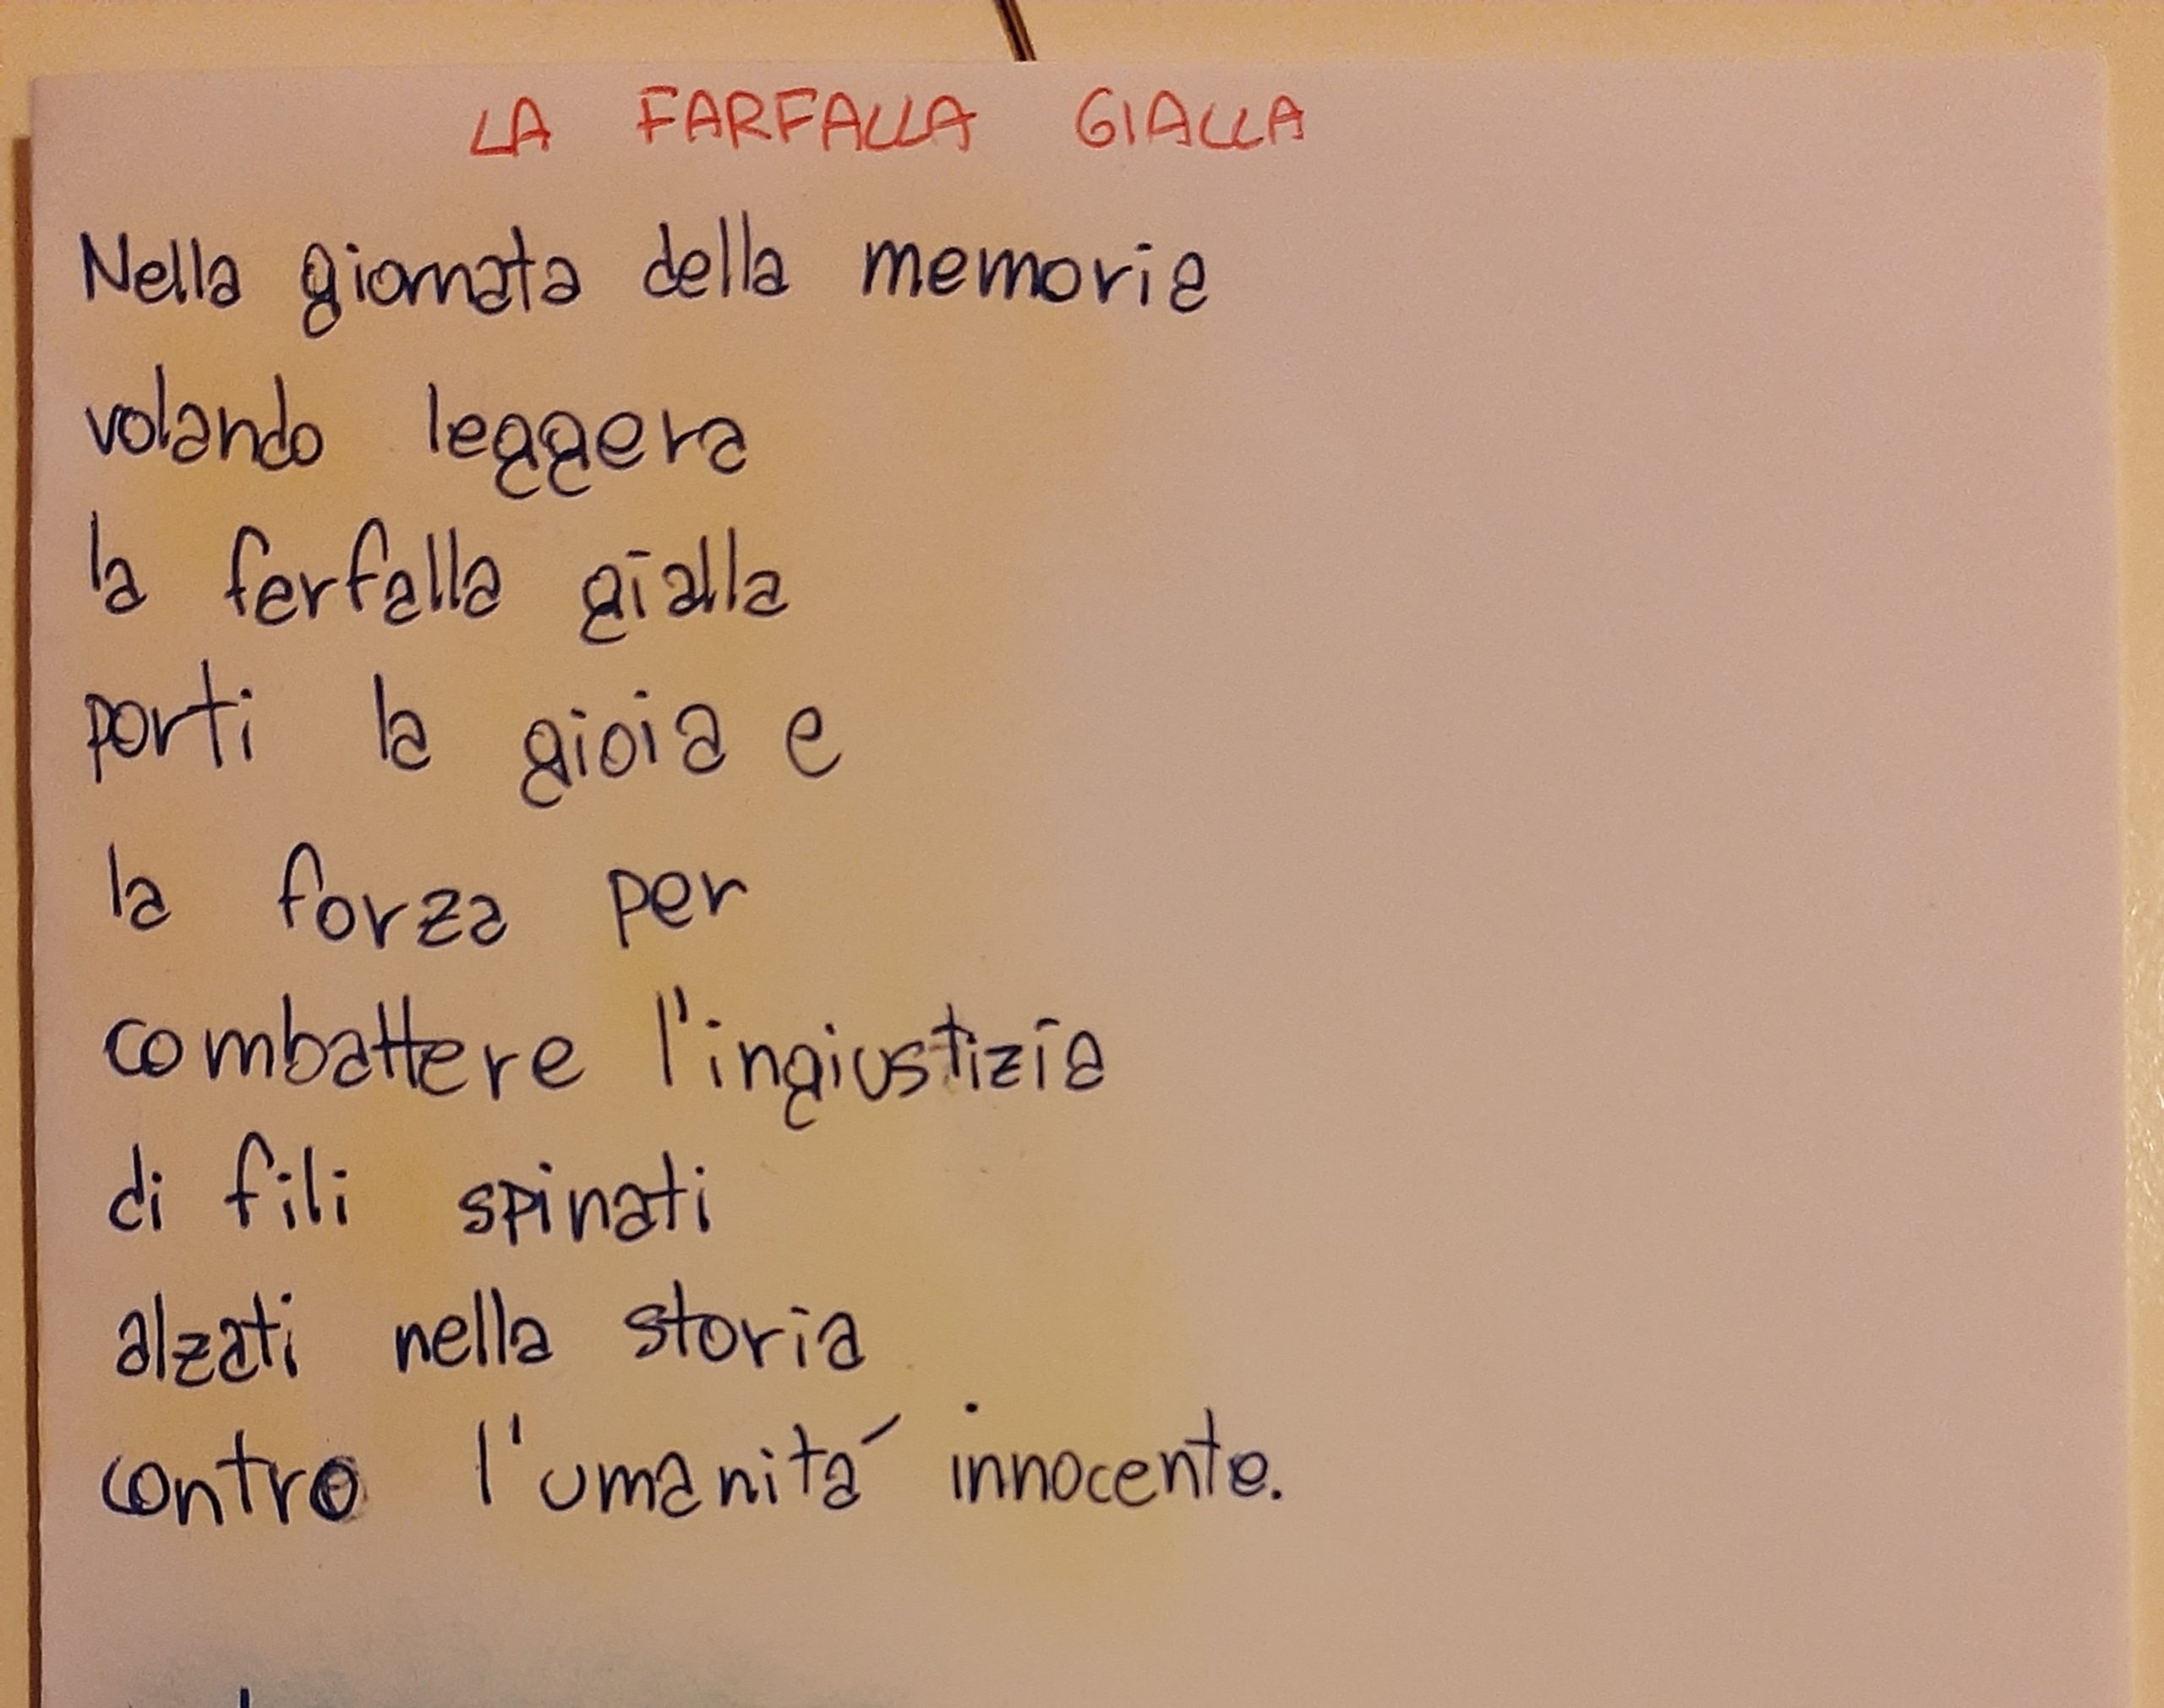 LA FARFALLA GIALLA
Nella giornata della memoria
volando leggera
la farfalla gialla
porti la gioia e
la forza per
combattere l'ingiustizia
di fili spinati
alzati nella storia
contro l'umanitá innocente.